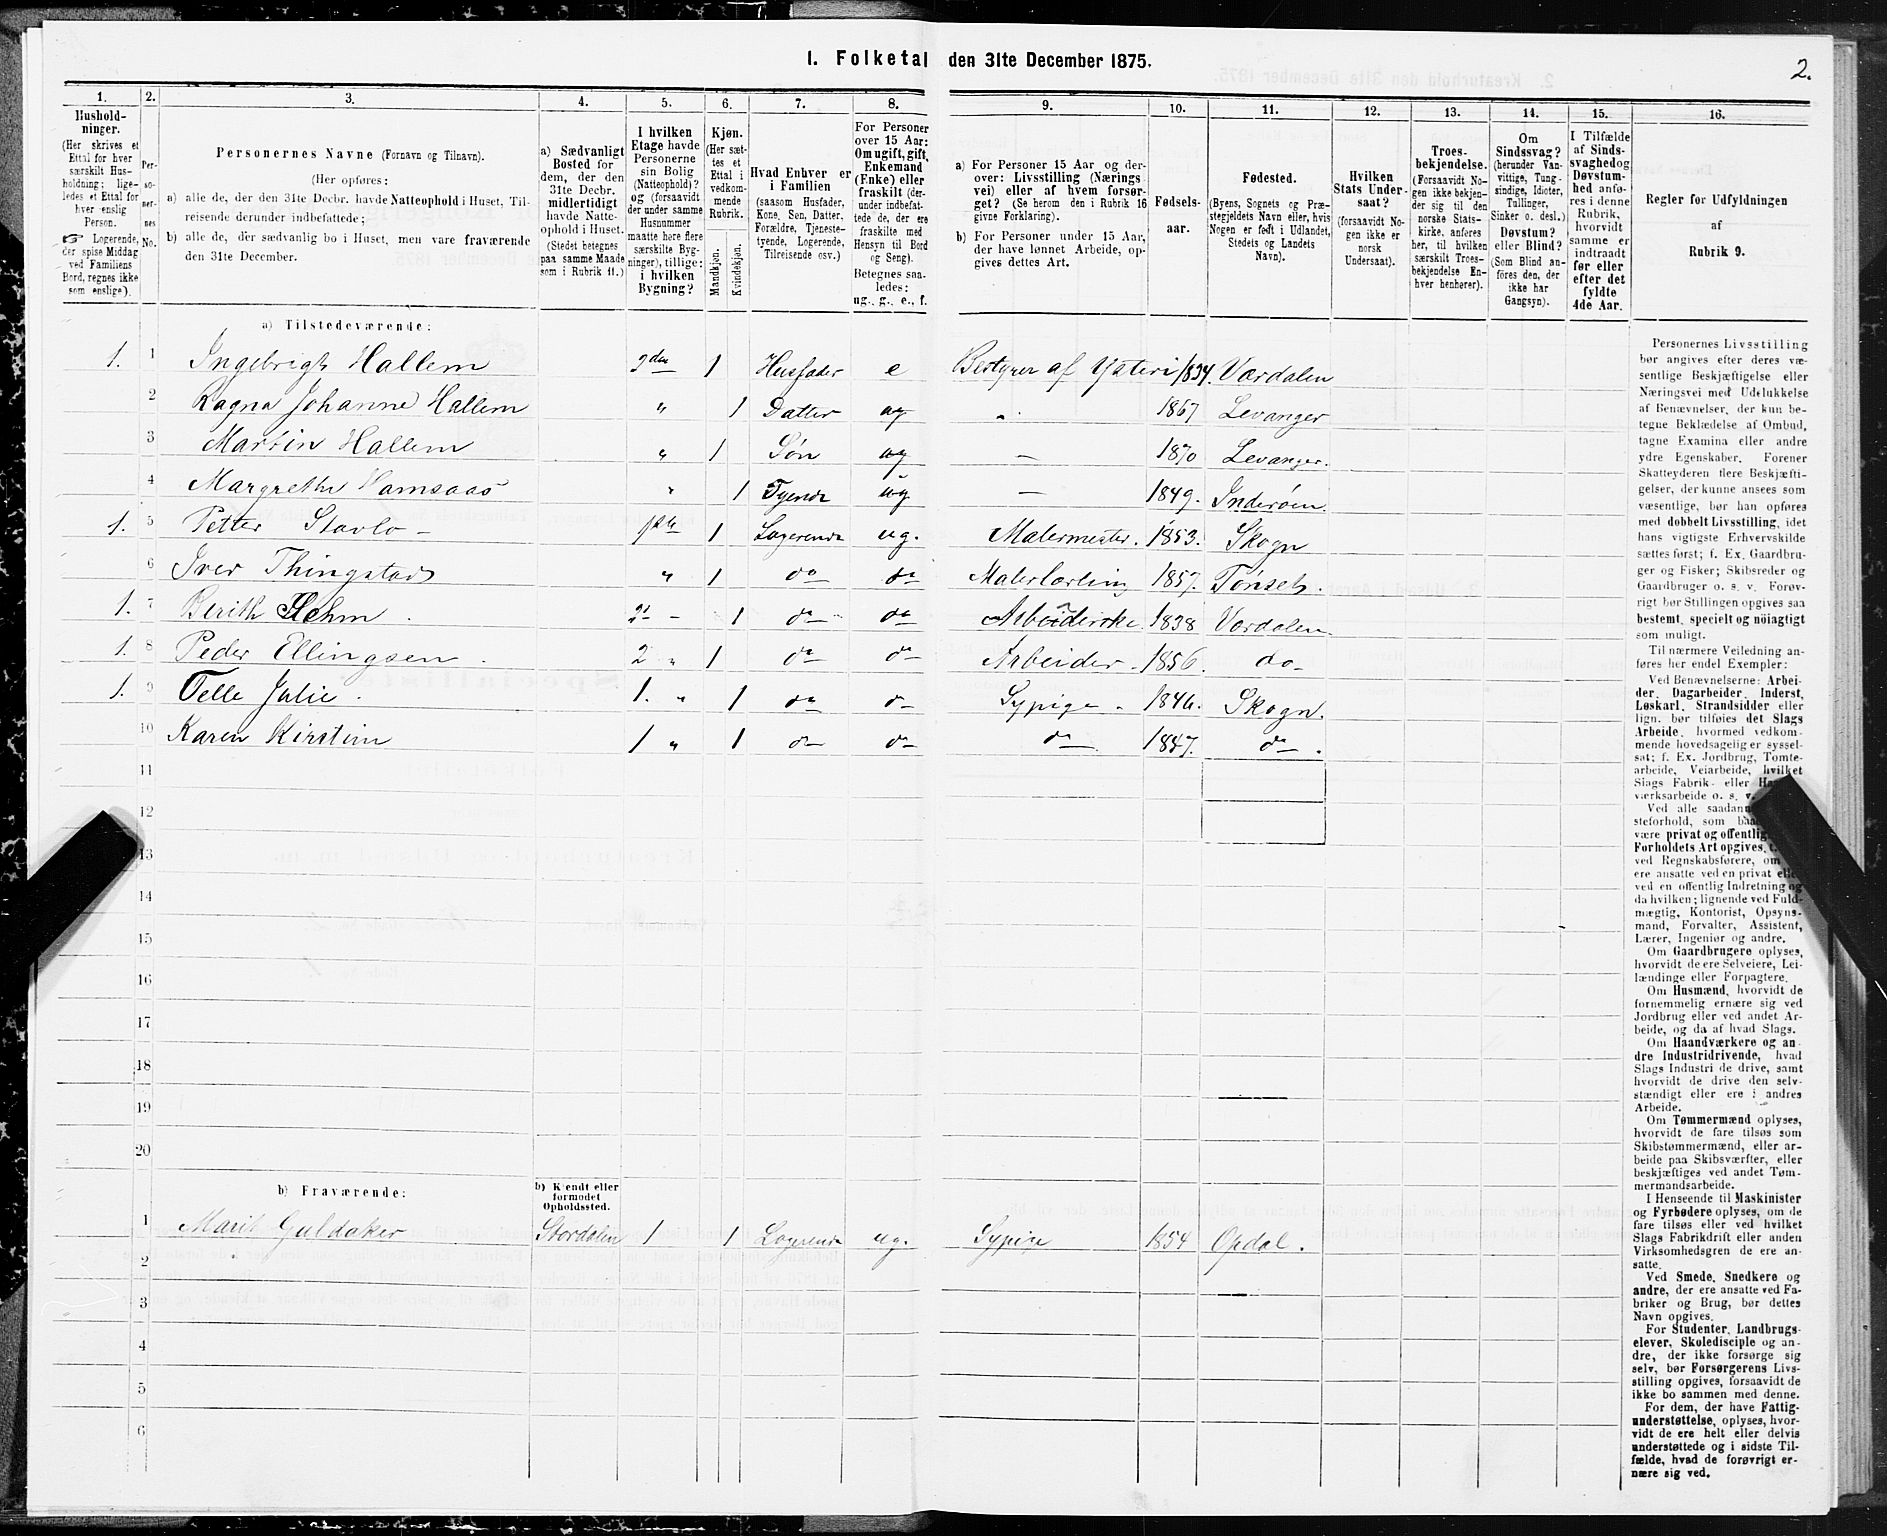 1. Folketal den 31te December 1875.
2.
1. 2. 3. 4. 5. 6. 7. 8. 9. 10. 11. 12. 13. 14. 15. 16.
Husholdninger.
(Her skrives et
Ettal for hver
særskilt Husholdning; ligeledes
et Ettal for
hver enslig
Person.
☞ Logerende,
der spise Middag
ved Familiens
Bord, regnes ikke
som enslige).
Personernes No.
Personernes Navne (Fornavn og Tilnavn).
(Her opføres:
a) alle de, der den 31te Decbr. havde Natteophold i Huset, Tilreisende
derunder indbefattede;
b) alle de, der sædvanlig bo i Huset, men vare fraværende
den 31te December.
a) Sædvanligt
Bosted for
dem, der den
31te Decbr.
midlertidigt
havde Natteophold
i Huset.
(Stedet betegnes
paa samme Maade
som i Rubrik 11.)
I hvilken
Etage havde
Personerne
sin Bolig
(Natteophold)?
og (forsaavidt
der under samme
Husnummer
maatte høre flere
særskilte Bygninger),
tillige:
i hvilken
Bygning?
Kjøn.
(Her sættes
et
Ettal i
vedkommende
Rubrik.
Mandkjøn.
Kvindekjøn.
Hvad Enhver er
i Familien
(saasom Husfader,
Kone, Søn, Datter,
Forældre, Tjenestetyende,
Logerende,
Tilreisende osv.)
For Personer
over 15 Aar:
Om ugift, gift,
Enkemand
(Enke) eller
fraskilt (derunder
indbefattede
de, der ere
fraskilte med
Hensyn til Bord
og Seng).
Betegnes saaledes:
ug., g., e., f.
a) For Personer 15 Aar og derover:
Livsstilling (Næringsvei)
eller af hvem forsørget?
(Se herom den i Rubrik 16
givne Forklaring).
b) For Personer under 15 Aar,
der have lønnet Arbeide, opgives
dettes Art.
Fødselsaar.
Fødested.
(Byens, Sognets og Præstegjeldets
Navn eller, hvis
Nogen er født i Udlandet,
Stedets og Landets
Navn).
Hvilken
Stats Undersaat?
(forsaavidt Nogen
ikke er
norsk
Undersaat).
Troesbekjendelse.
(Forsaavidt Nogen
ikke bekjender
sig til den
norske Statskirke,
anføres
her, til hvilken
særskilt Troesbekjendelse
Enhver
henhører).
Om
Sindssvag?
(herunder Vanvittige,
Tungsindige,
Idioter,
Tullinger,
Sinker o. desl.)
Døvstum?
eller Blind?
(Som Blind anføres
den, der
ikke har
Gangsyn).
I Tilfælde
af Sindssvaghed
og
Døvstumhed
anføres
i denne
Rubrik,
hvorvidt
samme er
indtraadt
før eller
efter det
fyldte
4de Aar.
Regler for Udfyldningen
af
Rubrik 9.
a) Tilstedeværende:
1. 1 Ingebrigt Hallem 2den 1 Husfader e Bestyrer af Ysteri 1834. Værdalen
2 Ragna Johanne Hallem " 1 Datter ug " 1867 Levanger
3 Martin Hallem " 1 Søn ug — 1870 Levanger.
4 Margrethe Hamsaas " 1 Tyende ug — 1849. Inderøen
1. 5 Petter Stavlo 1ste 1 Logerende ug. Malermester. 1853. Skogn
6 Iver Thingstad " 1 do do Malerlærling 1857. Tønset.
1. 7 Berith 2 " 1 do do 1838 Værdalen
1. 8 Peder Ellingsen 2 " 1 do do Arbeider. 1856. do
1. 9 Telle Julie. 1. " 1 do do Sypige. 1846. Skogn.
10 Karen Kirstin 1 " 1 do do do 1847. do.
11
12
13
14
15
16
17
18
19
20
b) Fraværende:
b) Kjendt eller
formodet
Opholdssted.
1 Marit Guldaker Stordalen 1 1 Logerende ug. Sypige 1854 Opdal.
2
3
4
5
6
Personernes Livsstilling
bør angives efter deres væsentlige
Beskjæftigelse eller
Næringsvei med Udelukkelse
af Benævnelser, der kun betegne
Beklædelse af Ombud,
tagne Examina eller andre
ydre Egenskaber. Forener
Skatteyderen flere Beskjæftigelser,
der kunne ansees som
væsentlige, bør han opføres
med dobbelt Livsstilling, idet
hans vigtigste Erhvervskilde
sættes først; f. Ex. Gaardbruger
og Fisker; Skibsreder og
Gaardbruger o. s. v. Forøvrigt
bør Stillingen opgives saa
bestemt, specielt og nøiagtigt
som muligt.
Til nærmere Veiledning anføres
her endel Exempler:
Ved Benævnelserne: Arbeider,
Dagarbeider, Inderst,
Løskarl, Strandsidder eller
lign. bør tilføies det Slags
Arbeide, hvormed vedkommende
hovedsagelig er sysselsat;
f. Ex. Jordbrug, Tomtearbeide,
Veiarbeide, hvilket
Slags Fabrik- eller
værksarbeide o. s. v.
Ved alle saadanne
steforhold, som
være privat og offentlig
Forholdets Art opgives,
ved Regnskabsførere, om
ere ansatte ved en privat eller
ved en offentlig Indretning og
da hvilken; lignende ved Fuldmægtig,
Kontorist, Opsynsmand,
Forvalter, Assistent,
Lærer, Ingeniør og andre.
Om Gaardbrugere oplyses,
hvorvidt de ere Selveiere, Leilændinge
eller Forpagtere.
Om Husmænd, hvorvidt de
fornemmelig ernære sig ved
Jordbrug eller ved andet Arbeide,
og da af hvad Slags.
Om Haandværkere og andre
Industridrivende, hvad
Slags Industri de drive, samt
hvorvidt de drive den selvstændigt
eller ere i andres
Arbeide.
Om Tømmermænd oplyses,
hvorvidt de fare tilsøs som
Skibstømmermænd, eller arbeide
paa Skibsværfter, eller
beskjæftiges ved andet Tømmermandsarbeide.
I Henseende til Maskinister
og Fyrbødere oplyses, om de
fare tilsøs eller ved hvilket
Slags Fabrikdrift eller anden
Virksomhedsgren de ere ansatte.
Ved Smede, Snedkere og
andre, der ere ansatte ved Fabriker
og Brug, bør dettes
Navn opgives.
For Studenter, Landbrugselever,
Skoledisciple og andre,
der ikke forsørge sig
selv, bør Forsørgerens Livsstilling
opgives, forsaavidt de
ikke bo sammen med denne.
For dem, der have Fattigunderstøttelse,
oplyses, hvorvidt
de ere helt eller delvis
understøttede og i sidste Tilfælde,
hvad de forøvrigt ernære
sig ved.